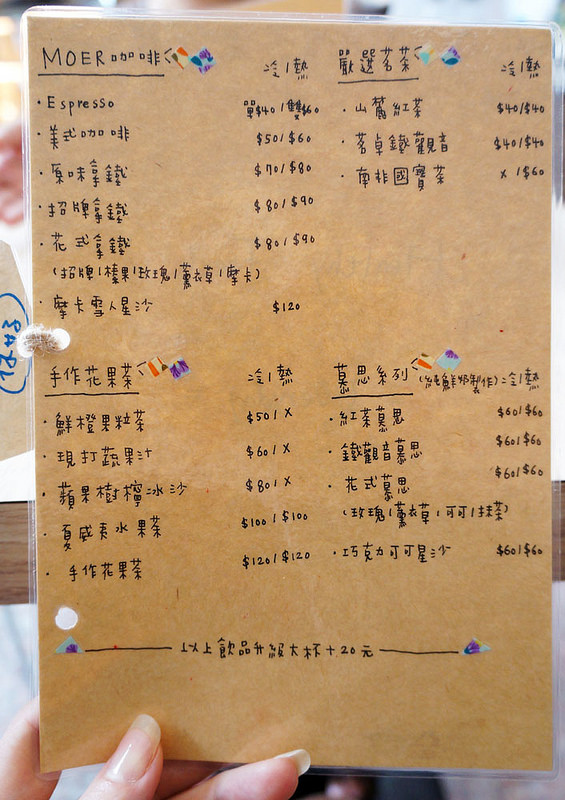 MOER咖啡 冷/熱
·Espresso 單$40/雙$60
·美式咖啡 $50/$60
·原味拿鐵 $70/$80
·招牌拿鐵 $80/$90
·花式拿鐵 $80/$90
(招牌/榛果/玫瑰/薰衣草/摩卡)
·摩卡雪人星沙 $120
嚴選茗茶 冷/熱
·山麓紅茶 $40/$40
·茗卓鐵觀音 $40/$40
·南非國寶茶 x/$60
手作花果茶 冷/熱
·鮮橙果粒茶 $50/x
·現打蔬果汁 $60/x
·蘋果樹檸冰沙 $80/x
·夏威夷水果茶 $100/$100
·手作花果茶 $120/$120
慕思系列(純鮮奶製作)冷/熱
·紅茶慕思 $60/$60
·鐵觀音慕思 $60/$60
·花式慕思 $60/$60
(玫瑰/薰衣草/可可/抹茶)
·巧克力可可星沙 $60/$60
以上飲品升級大杯+20元